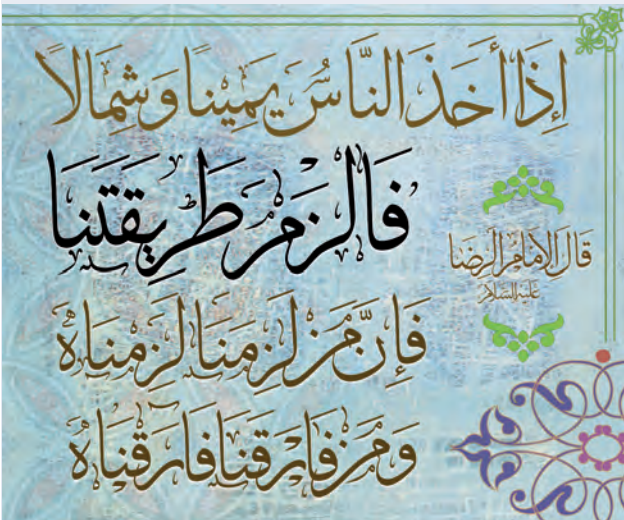 إِذَا أَخَذَ النَّاسُ يَمِينًا وَشِمَالًا
فَالْزَمْ طَرِيقَتَنَا
قَالَ الْإِمَامُ الرِّضَا
عَلَيْهِ السَّلَامُ
فَإِنَّ مَنْ لَزِمَنَا لَزِمْنَاهُ
وَمَنْ فَارَقَنَا فَارَقْنَاهُ